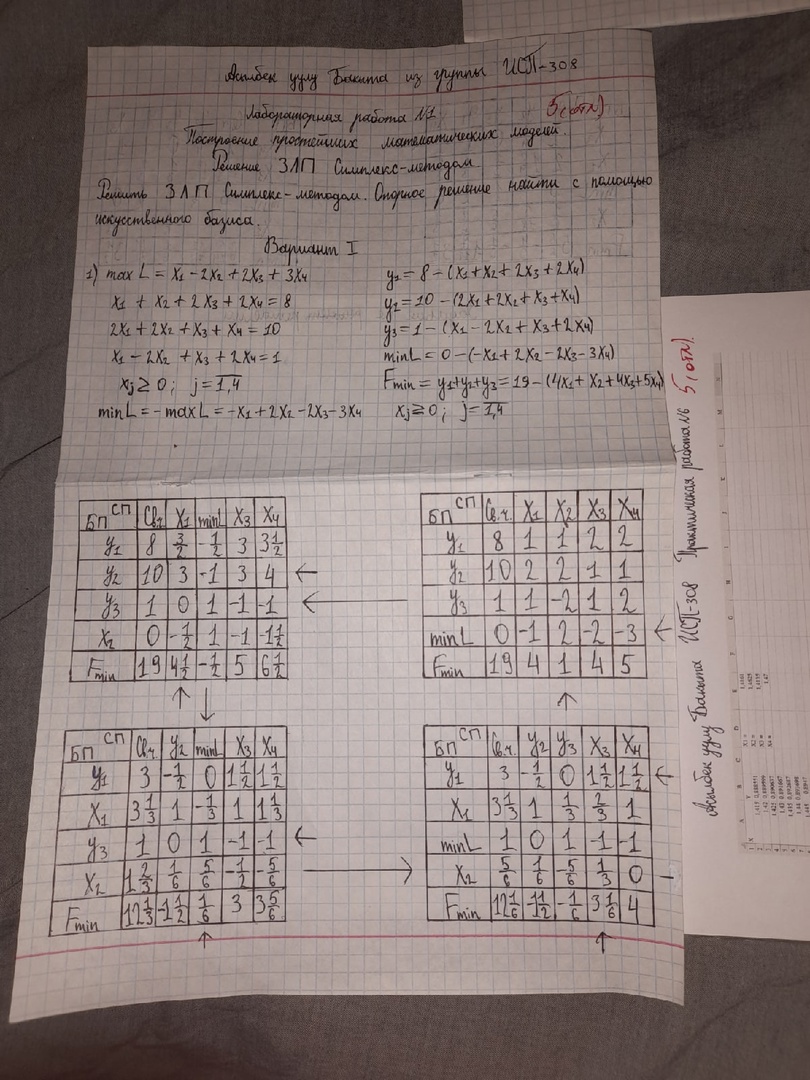 Асылбек уулу Бакыта из группы ИСП-308
Лабораторная работа №1
5(отл)
Построение простейших математических моделей.
Решение ЗЛП Симплекс-методом
Решить ЗЛП Симплекс-методом. Опорное решение найти с помощью
искусственного базиса.
Вариант I
1) max L = x₁ - 2x₂ + 2x₃ + 3x₄
x₁ + x₂ + 2x₃ + 2x₄ = 8
2x₁ + 2x₂ + x₃ + x₄ = 10
x₁ - 2x₂ + x₃ + 2x₄ = 1
xⱼ ≥ 0; j = 1,4
min L = -max L = -x₁ + 2x₂ - 2x₃ - 3x₄
y₁ = 8 - (x₁ + x₂ + 2x₃ + 2x₄)
y₂ = 10 - (2x₁ + 2x₂ + x₃ + x₄)
y₃ = 1 - (x₁ - 2x₂ + x₃ + 2x₄)
min L = 0 - (-x₁ + 2x₂ - 2x₃ - 3x₄)
Fmin = y₁ + y₂ + y₃ = 19 - (4x₁ + x₂ + 4x₃ + 5x₄)
xⱼ ≥ 0; j = 1,4
БП СП Св.ч. X₁ minL X₃ X₄
y₁ 8 3/2 -1/2 3 3 1/2
y₂ 10 3 -1 3 4 ←
y₃ 1 0 1 -1 -1
X₂ 0 -1/2 1 -1 -1 1/2
Fmin 19 4 1/2 -1/2 5 6 1/2
↑ ↓
БП СП Св.ч. X₁ X₂ X₃ X₄
y₁ 8 1 1 2 2
y₂ 10 2 2 1 1
← y₃ 1 1 -2 1 2
minL 0 -1 2 -2 -3 ←
Fmin 19 4 1 4 5
↑
БП СП Св.ч. y₂ minL X₃ X₄
y₁ 3 -1/2 0 1 1/2 1 1/2
X₁ 3 1/3 1 -1/3 1 1 1/3
y₃ 1 0 1 -1 -1 ←
X₂ 1 2/3 1/6 5/6 -1/2 -5/6
Fmin 12 1/3 -1 1/2 1/6 3 3 5/6
↑
→
БП СП Св.ч. y₂ y₃ X₃ X₄
y₁ 3 -1/2 0 1 1/2 1 1/2 ←
X₁ 3 1/3 1 1/3 2/3 1
minL 1 0 1 -1 -1
X₂ 5/6 1/6 -5/6 1/3 0 -
Fmin 12 1/6 -1 1/2 -1/6 3 1/6 4
↑
Асылбек уулу Бакыта ИСП-308 Практическая работа №6 5(отл).